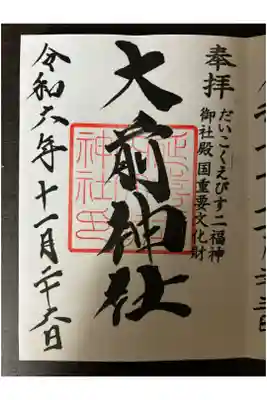 奉拝
だいこくえびす二福神
御社殿国重要文化財
大前神社
神社印
令和六年十一月二十六日